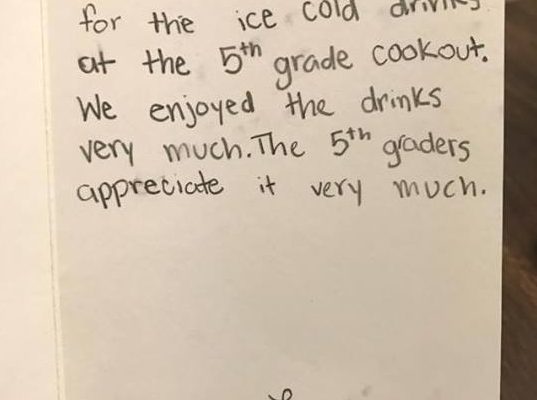 for the ice cold drinks
at the 5th grade cookout.
We enjoyed the drinks
very much. The 5th graders
appreciate it very much.